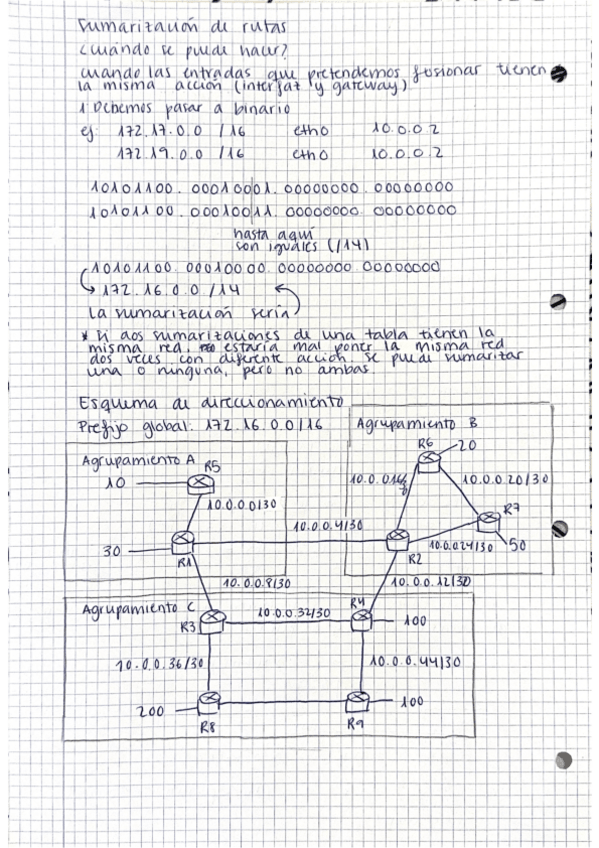 Sumarización de rutas
¿Cuándo se puede hacer?
cuando las entradas que pretendemos fusionar tienen
la misma acción (interfaz y gateway)
1. Debemos pasar a binario
ej 172.17.0.0 /16 eth0 10.0.0.2
172.19.0.0 /16 eth0 10.0.0.2
10101100.00010001.00000000.00000000
10101100.00010011.00000000.00000000
hasta aquí
son iguales (/14)
10101100.00010000.00000000.00000000
172.16.0.0/14
La sumarización sería
* Si dos sumarizaciones de una tabla tienen la
misma red, estaría mal poner la misma red
dos veces con diferente acción se puede sumarizar
una o ninguna, pero no ambas.
Esquema de direccionamiento
Prefijo global: 172.16.0.0/16
Agrupamiento B
R6
20
Agrupamiento A
R5
10
10.0.0.20/30
10.0.0.0/30
R7
10.0.0.4/30
30
R1
10.0.0.24/30
50
R2
10.0.0.8/30
10.0.0.12/30
Agrupamiento C
10.0.0.32/30
R4
R3
100
10.0.0.36/30
10.0.0.44/30
200
100
R8
R9